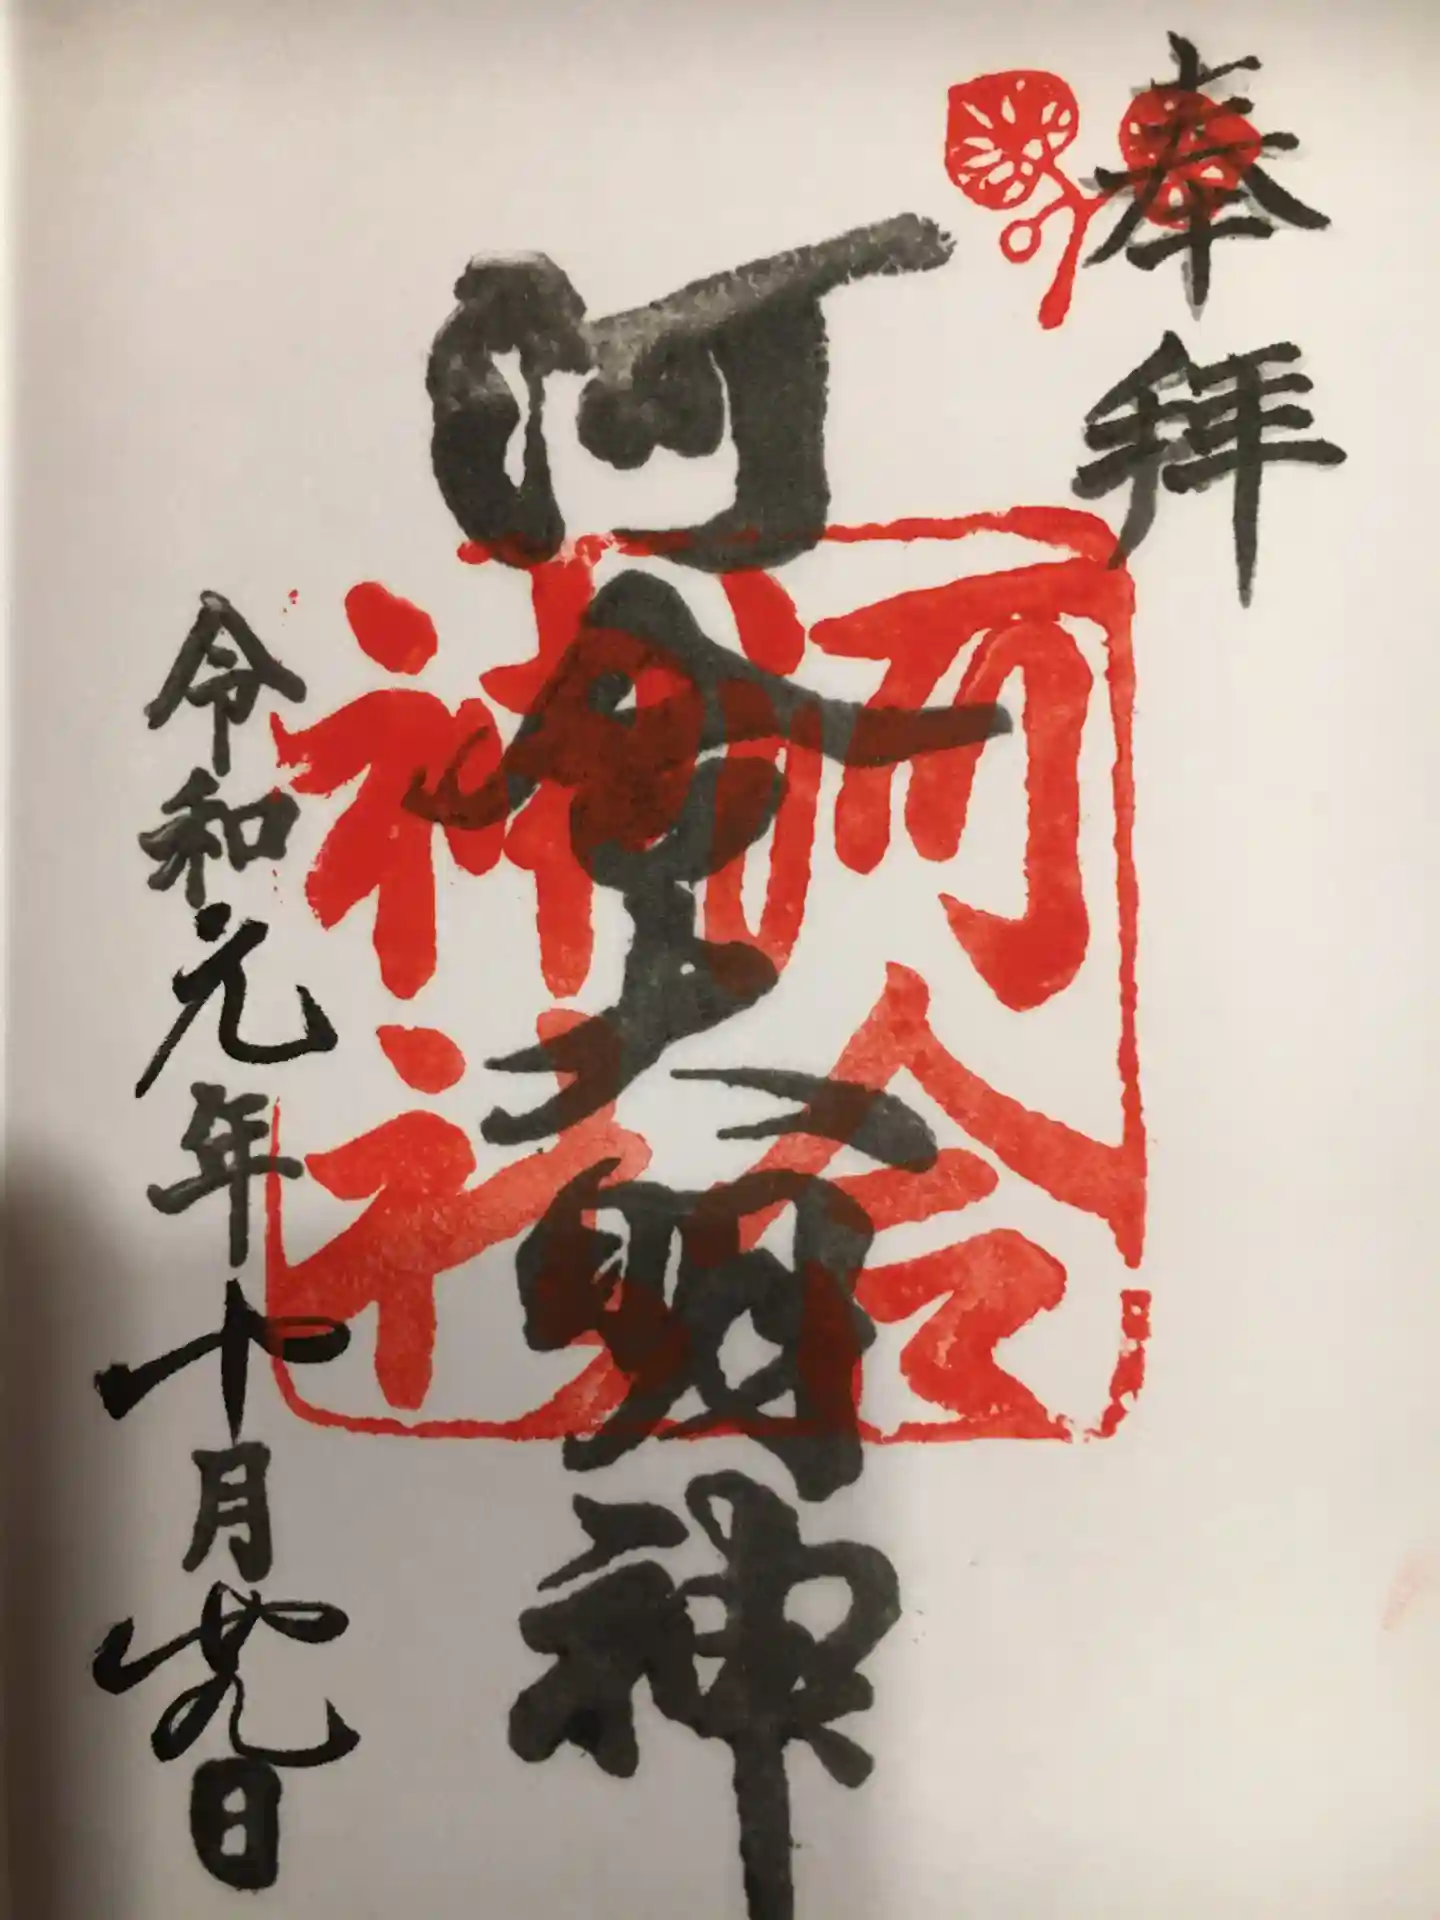 奉拝
河合大明神
河合
神社
令和元年十月廿九日